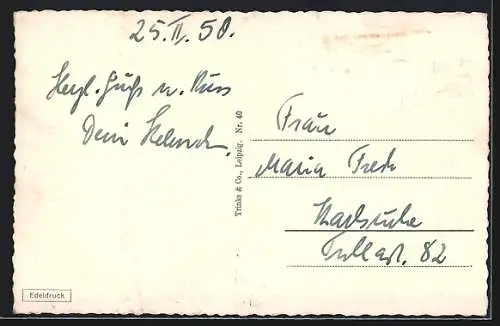 25.II.50.
Herzl. Gruß u. Kuss
Dein Helmut.
Trinks & Co., Leipzig. Nr. 40
Frau
Maria
Karlsruhe
82
Edeldruck